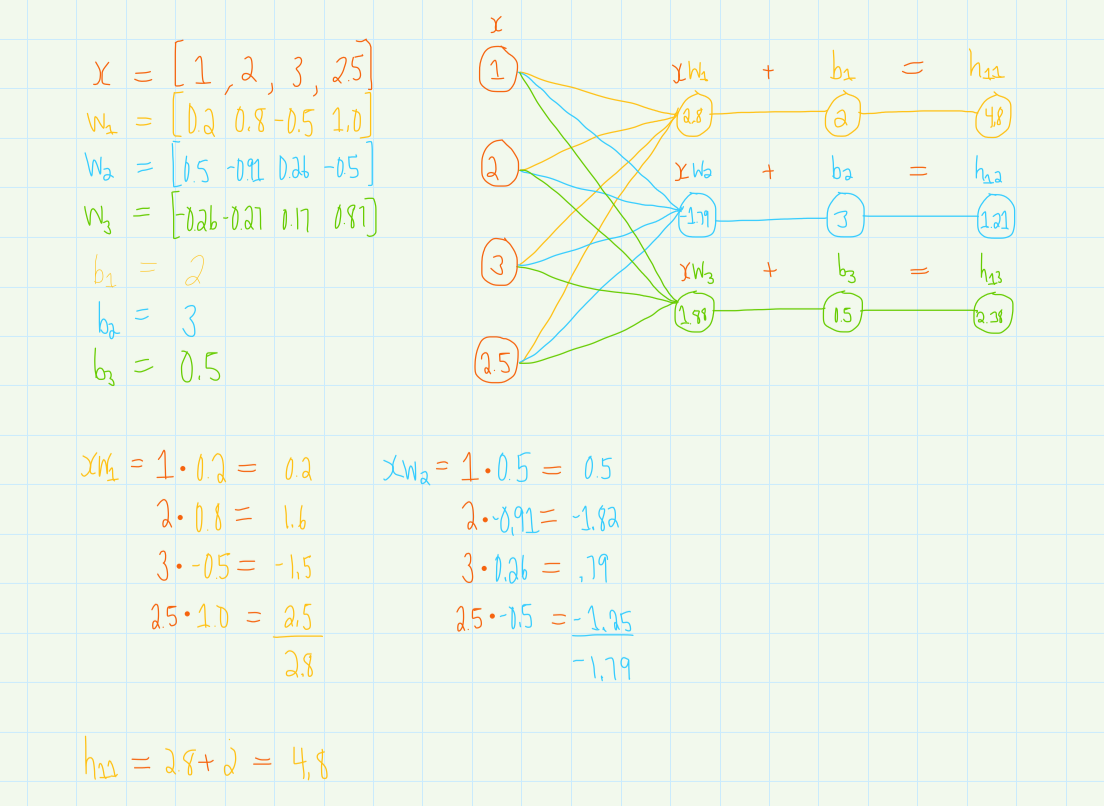 x = [1, 2, 3, 2.5]
w₁ = [0.2 0.8 -0.5 1.0]
w₂ = [0.5 -0.91 0.26 -0.5]
w₃ = [-0.26 -0.27 0.17 0.87]
b₁ = 2
b₂ = 3
b₃ = 0.5
x
1
2
3
2.5
xw₁ + b₁ = h₁₁
2.8 2 4.8
xw₂ + b₂ = h₁₂
-1.79 3 1.21
xw₃ + b₃ = h₁₃
1.88 0.5 2.38
xw₁ = 1 • 0.2 = 0.2
2 • 0.8 = 1.6
3 • -0.5 = -1.5
2.5 • 1.0 = 2.5
2.8
xw₂ = 1 • 0.5 = 0.5
2 • -0.91 = -1.82
3 • 0.26 = .79
2.5 • -0.5 = -1.25
-1.79
h₁₁ = 2.8 + 2 = 4.8